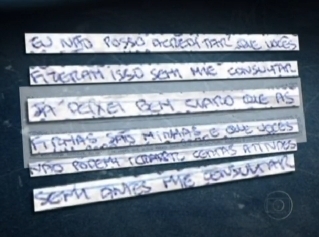 EU NÃO POSSO ACREDITAR QUE VOCÊS
FIZERAM ISSO SEM ME CONSULTAR
JÁ DEIXEI BEM CLARO QUE AS
FILHAS SÃO MINHAS E QUE VOCÊS
NÃO PODEM TOMAR CERTAS ATITUDES
SEM ANTES ME CONSULTAR